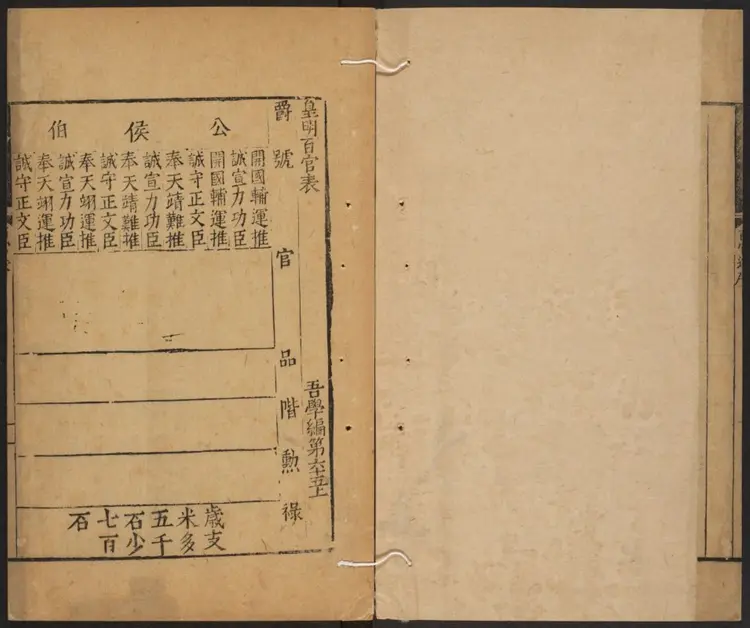 皇明百官表
吾學編第六十五上
爵號
官
品
階
勳
祿
公
侯
伯
開國輔運推
誠宣力功臣
開國輔運推
誠守正文臣
奉天靖難推
誠宣力功臣
奉天靖難推
誠守正文臣
奉天翊運推
誠宣力功臣
奉天翊運推
誠守正文臣
歲支
米多
五千
石少
七百
石